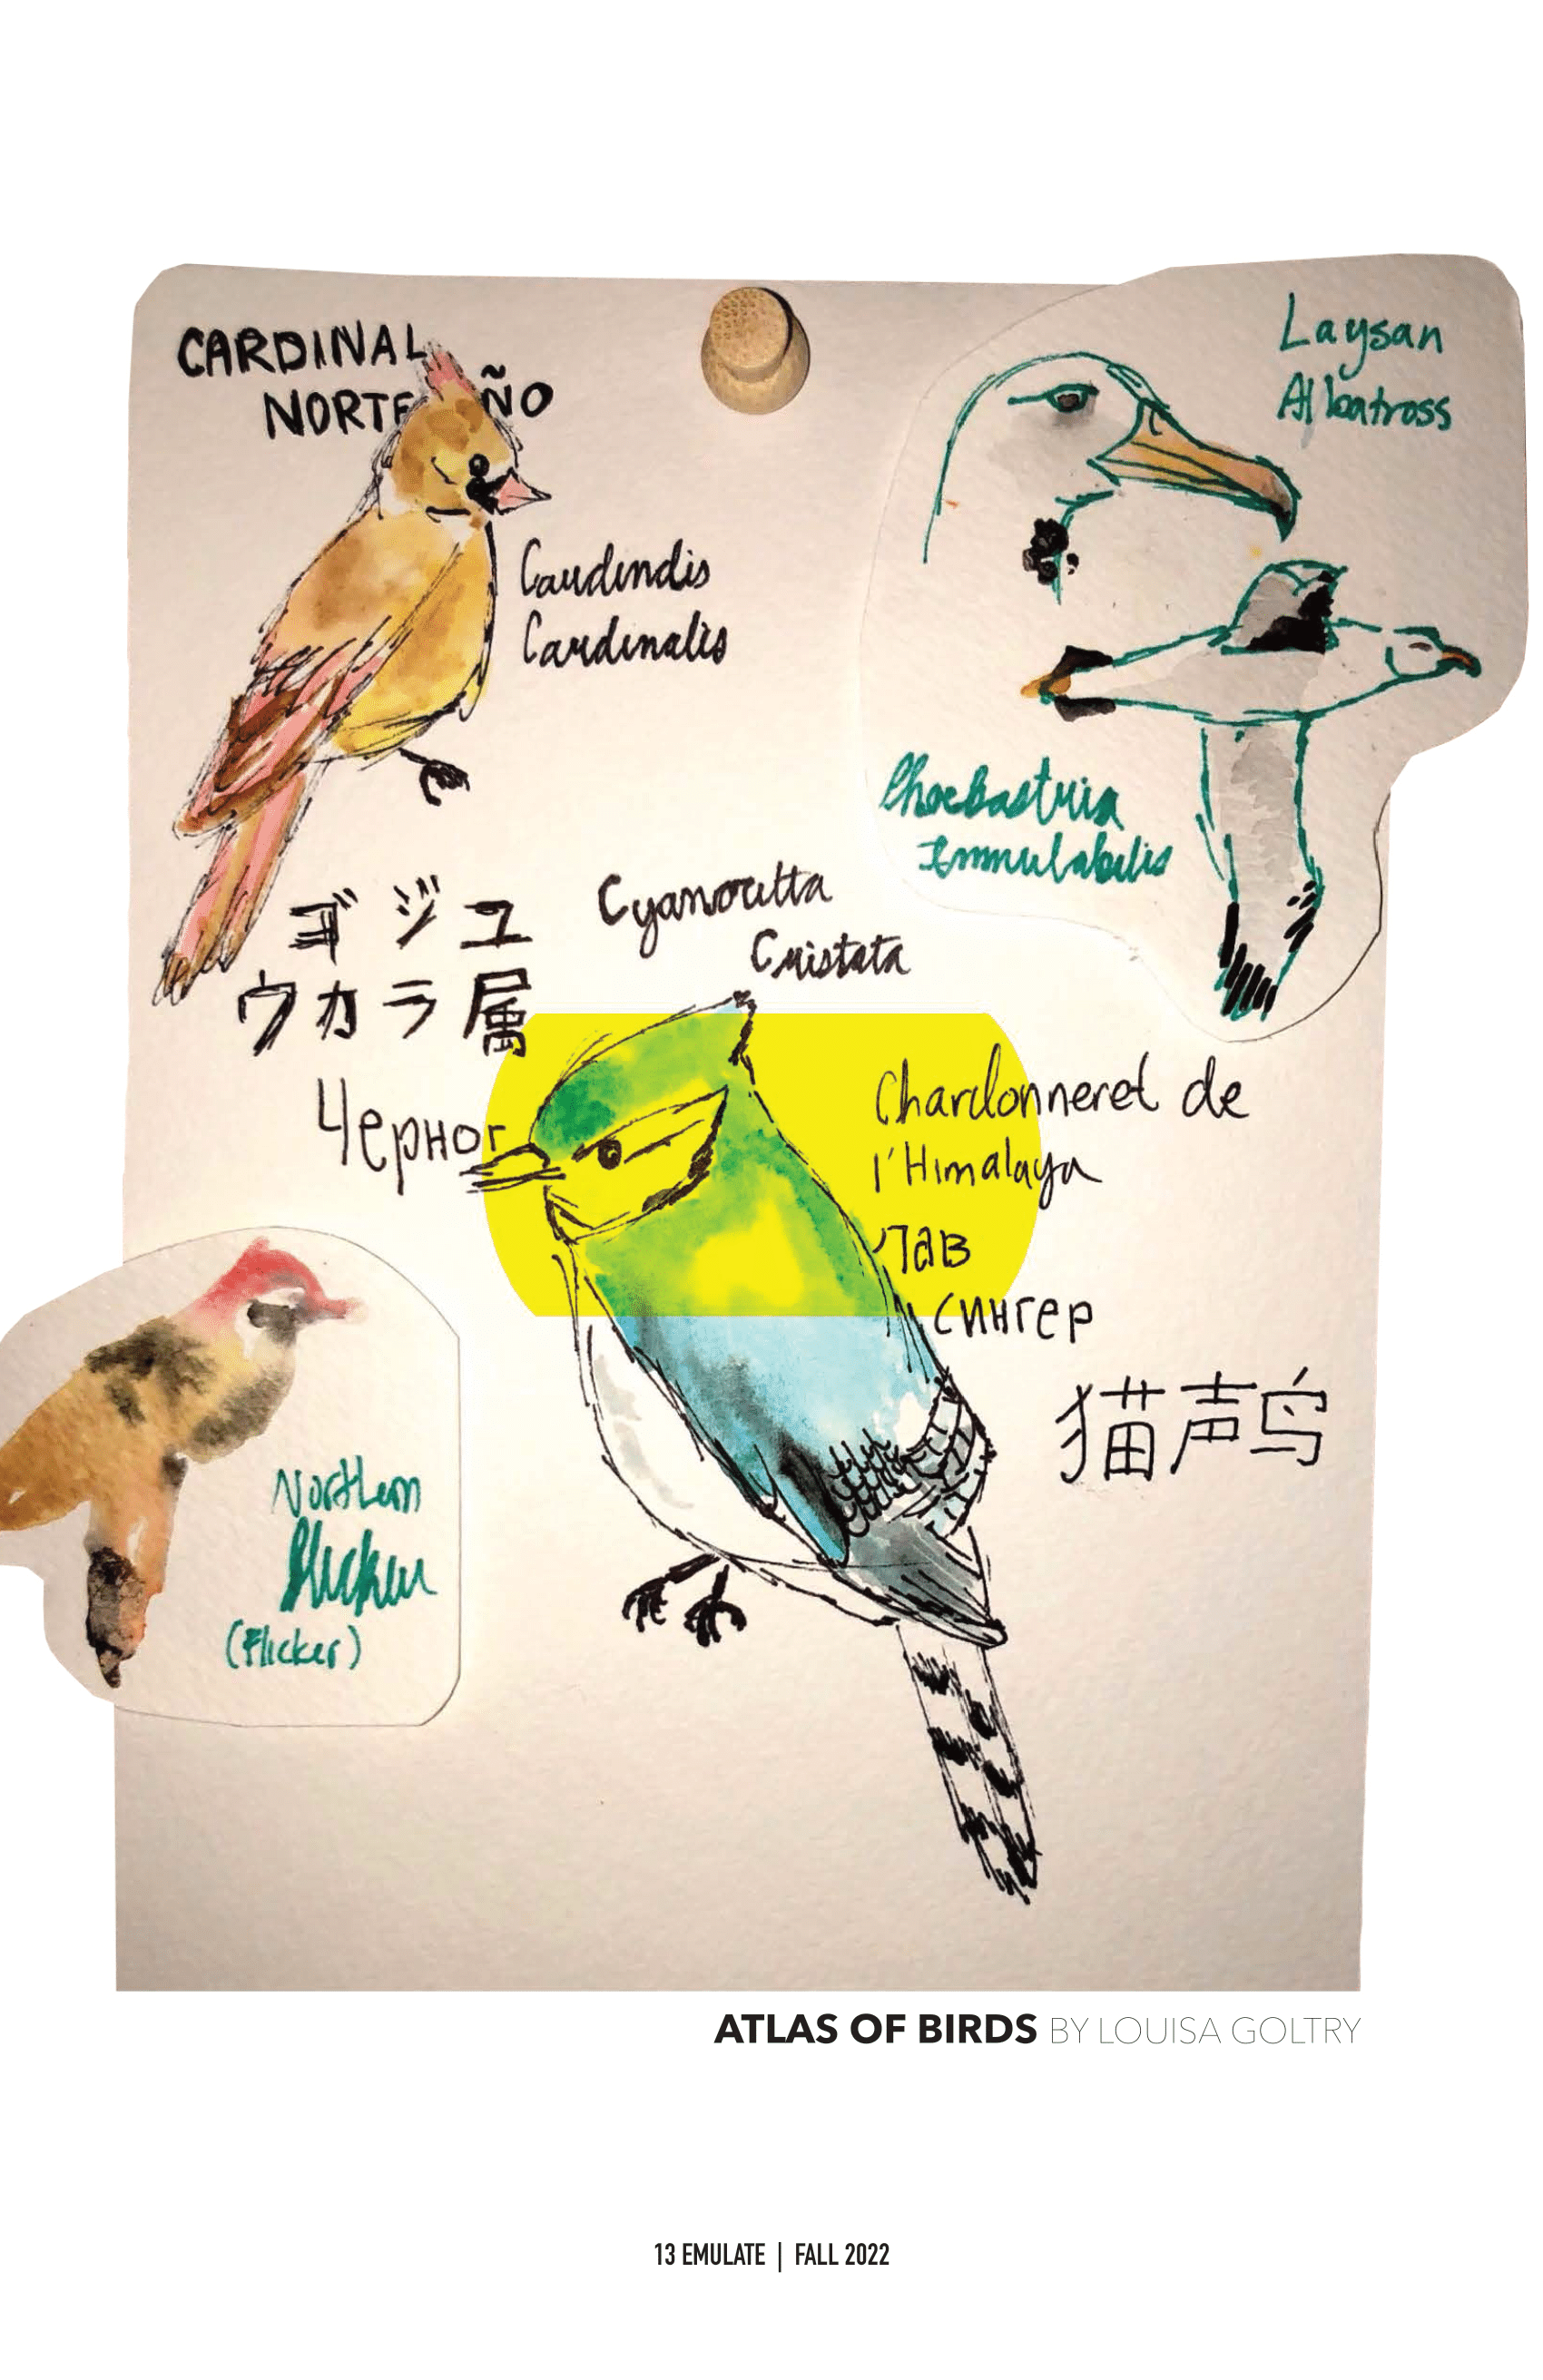 CARDINAL
NORTEÑO
Cardindis
Cardinalis
Laysan
Albatross
Phoebastria
Immulabilis
ゴジュ
ウカラ属
Cyanocitta
Cristata
Черног
Chardonneret de
l'Himalaya
Лав
сингер
猫声鸟
Northern
Flicker
(Flicker)
ATLAS OF BIRDS BY LOUISA GOLTRY
13 EMULATE | FALL 2022